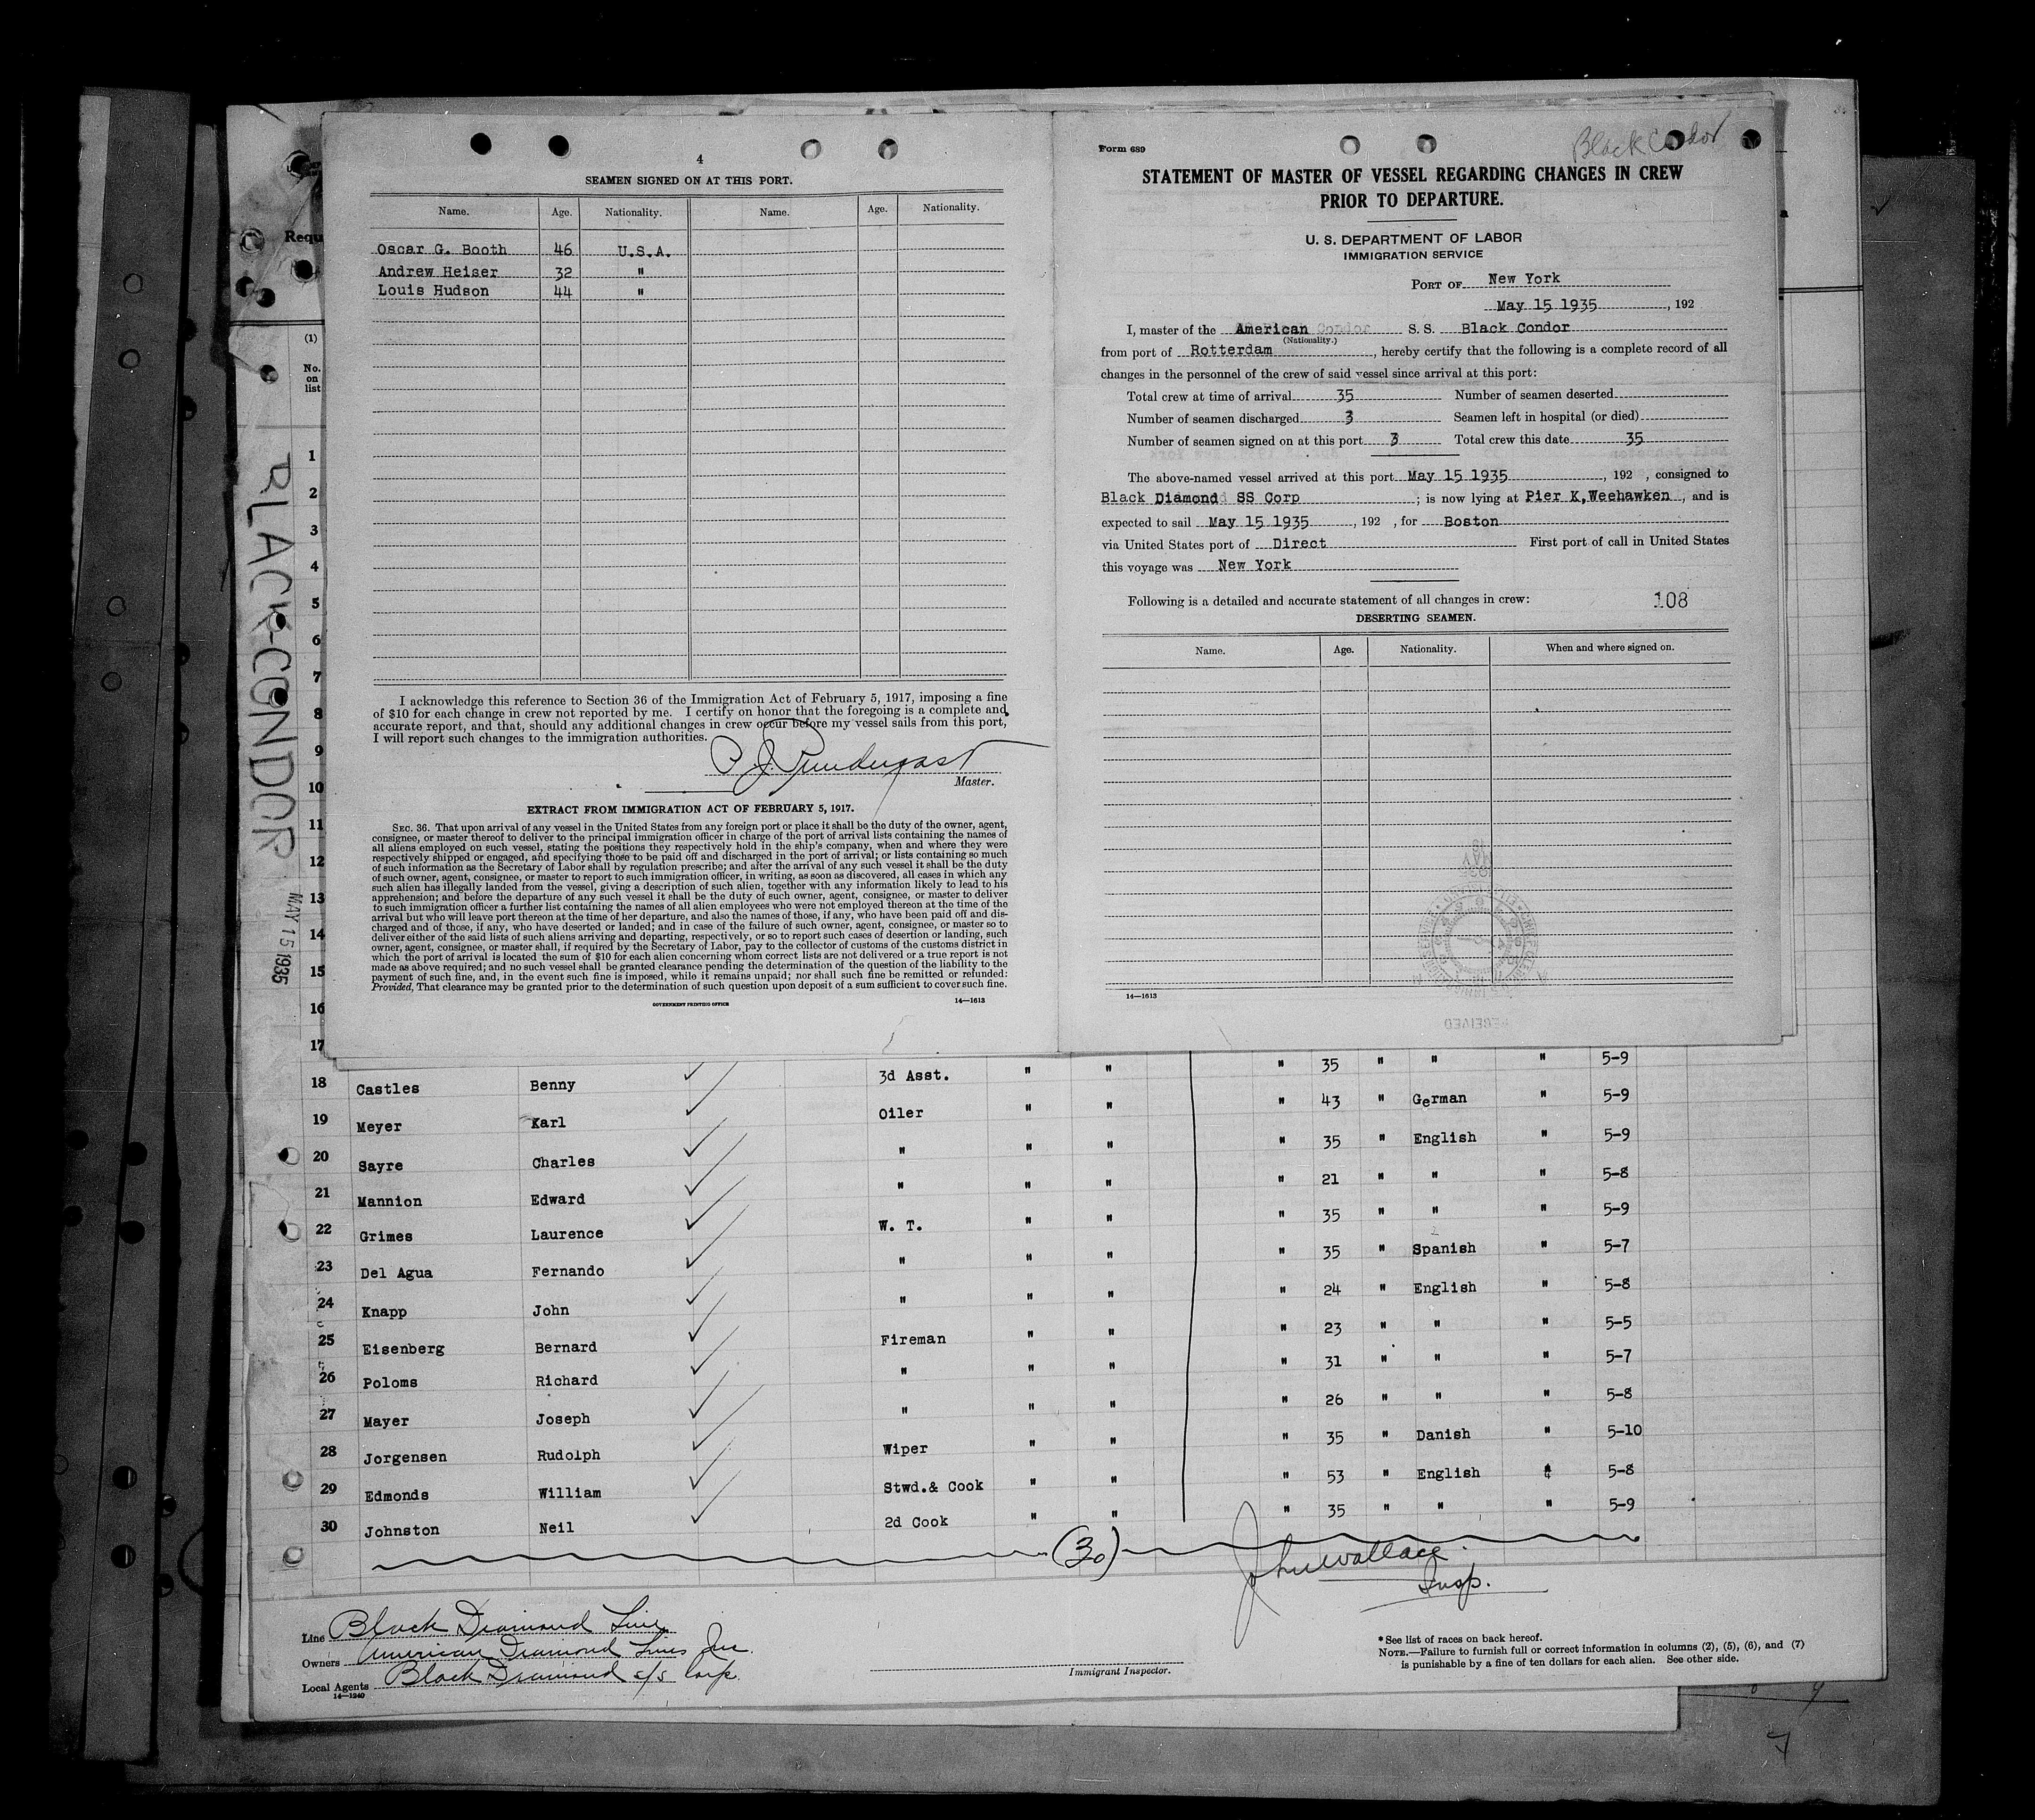 4
SEAMEN SIGNED ON AT THIS PORT.
Name. Age. Nationality. Name. Age. Nationality.
Oscar G. Booth 46 U.S.A.
Andrew Heiser 32 "
Louis Hudson 44 "
I acknowledge this reference to Section 36 of the Immigration Act of February 5, 1917, imposing a fine
of $10 for each change in crew not reported by me. I certify on honor that the foregoing is a complete and
accurate report, and that, should any additional changes in crew occur before my vessel sails from this port,
I will report such changes to the immigration authorities.
Master.
EXTRACT FROM IMMIGRATION ACT OF FEBRUARY 5, 1917.
SEC. 36. That upon arrival of any vessel in the United States from any foreign port or place it shall be the duty of the owner, agent,
consignee, or master thereof to deliver to the principal immigration officer in charge of the port of arrival lists containing the names of
all aliens employed on such vessel, stating the positions they respectively hold in the ship's company, when and where they were
respectively shipped or engaged, and specifying those to be paid off and discharged in the port of arrival; or lists containing so much
of such information as the Secretary of Labor shall by regulation prescribe; and after the arrival of any such vessel it shall be the duty
of such owner, agent, consignee, or master to report to such immigration officer, in writing, as soon as discovered, all cases in which any
such alien has illegally landed from the vessel, giving a description of such alien, together with any information likely to lead to his
apprehension; and before the departure of any such vessel it shall be the duty of such owner, agent, consignee, or master to deliver
to such immigration officer a further list containing the names of all alien employees who were not employed thereon at the time of the
arrival but who will leave port thereon at the time of her departure, and also the names of those, if any, who have been paid off and dis-
charged and of those, if any, who have deserted or landed; and in case of the failure of such owner, agent, consignee, or master so to
deliver either of the said lists of such aliens arriving and departing, respectively, or so to report such cases of desertion or landing, such
owner, agent, consignee, or master shall, if required by the Secretary of Labor, pay to the collector of customs of the customs district in
which the port of arrival is located the sum of $10 for each alien concerning whom correct lists are not delivered or a true report is not
made as above required; and no such vessel shall be granted clearance pending the determination of the question of the liability to the
payment of such fine, and, in the event such fine is imposed, while it remains unpaid; nor shall such fine be remitted or refunded:
Provided, That clearance may be granted prior to the determination of such question upon deposit of a sum sufficient to cover such fine.
GOVERNMENT PRINTING OFFICE 14—1613
Black Condor
Form 689
STATEMENT OF MASTER OF VESSEL REGARDING CHANGES IN CREW
PRIOR TO DEPARTURE.
U. S. DEPARTMENT OF LABOR
IMMIGRATION SERVICE
PORT OF New York
May 15 1935, 192
I, master of the American S. S. Black Condor
(Nationality.)
from port of Rotterdam, hereby certify that the following is a complete record of all
changes in the personnel of the crew of said vessel since arrival at this port:
Total crew at time of arrival 35 Number of seamen deserted
Number of seamen discharged 3 Seamen left in hospital (or died)
Number of seamen signed on at this port 3 Total crew this date 35
The above-named vessel arrived at this port May 15 1935, 192 , consigned to
Black Diamond SS Corp ; is now lying at Pier K, Weehawken, and is
expected to sail May 15 1935, 192 , for Boston
via United States port of Direct First port of call in United States
this voyage was New York
Following is a detailed and accurate statement of all changes in crew: 108
DESERTING SEAMEN.
Name. Age. Nationality. When and where signed on.
14—1613
RECEIVED
Requ
(1)
No.
on
list
BLACK-CONDOR MAY 15 1935
1
2
3
4
5
6
7
8
9
10
11
12
13
14
15
16
17 " 35 " " " 5-9
18 Castles Benny 3d Asst. " " " 43 " German " 5-9
19 Meyer Karl Oiler " " " 35 " English " 5-9
20 Sayre Charles " " " " 21 " " " 5-8
21 Mannion Edward " " " " 35 " " " 5-9
22 Grimes Laurence W. T. " " " 35 " Spanish " 5-7
23 Del Agua Fernando " " " " 24 " English " 5-8
24 Knapp John " " " " 23 " " " 5-5
25 Eisenberg Bernard Fireman " " " 31 " " " 5-7
26 Poloms Richard " " " " 26 " " " 5-8
27 Mayer Joseph " " " " 35 " Danish " 5-10
28 Jorgensen Rudolph Wiper " " " 53 " English " 5-8
29 Edmonds William Stwd.& Cook " " " 35 " " " 5-9
30 Johnston Neil 2d Cook " "
(30)
John Wallace
Insp.
Line Black Diamond Line
Owners American Diamond Lines Inc.
Local Agents Black Diamond s/s Corp.
14—1240
Immigrant Inspector.
* See list of races on back hereof.
NOTE.—Failure to furnish full or correct information in columns (2), (5), (6), and (7)
is punishable by a fine of ten dollars for each alien. See other side.